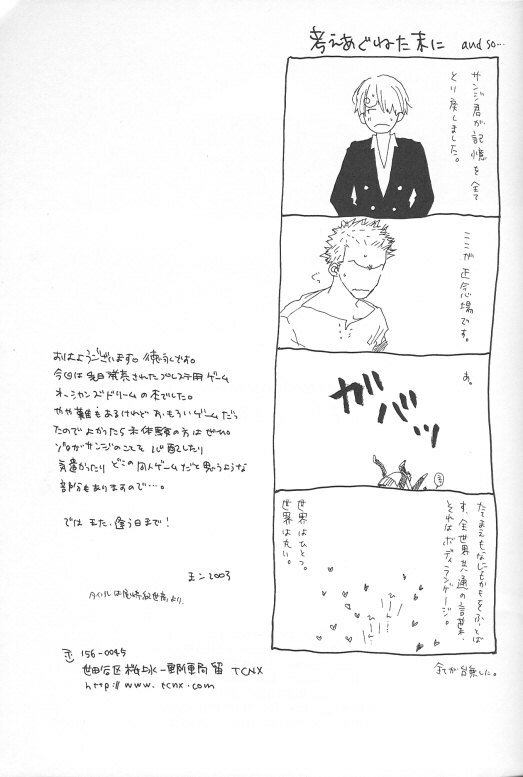 考えあぐねた末に and so…
サンジ君が記憶を全て
とり戻しました。
ここが正念場です。
ぐっ
あ。
ガバッ
たてまえもなにもかもをふっとば
す、全世界共通の言葉、
それはボディランゲージ。
世界はひとつ。
世界は丸い。
全てが台無した。
おはようございます。徳川です。
今回は先日発売されたプレステ用ゲーム
オーシャンズドリームの本でした。
やや難もあるけれどおもろいゲームだっ
たのでよかったら未体験の方はぜひ。
ゾロがサンジのことを心配したり
気番かったりどこの同人ゲームだと思うような
部分もありますので…。
では また、逢う日まで！
2003
タイトルは尾崎紀世彦より。
〒156-0045
世田谷区桜上水一郵便局留 TCNX
http://www.tcnx.com